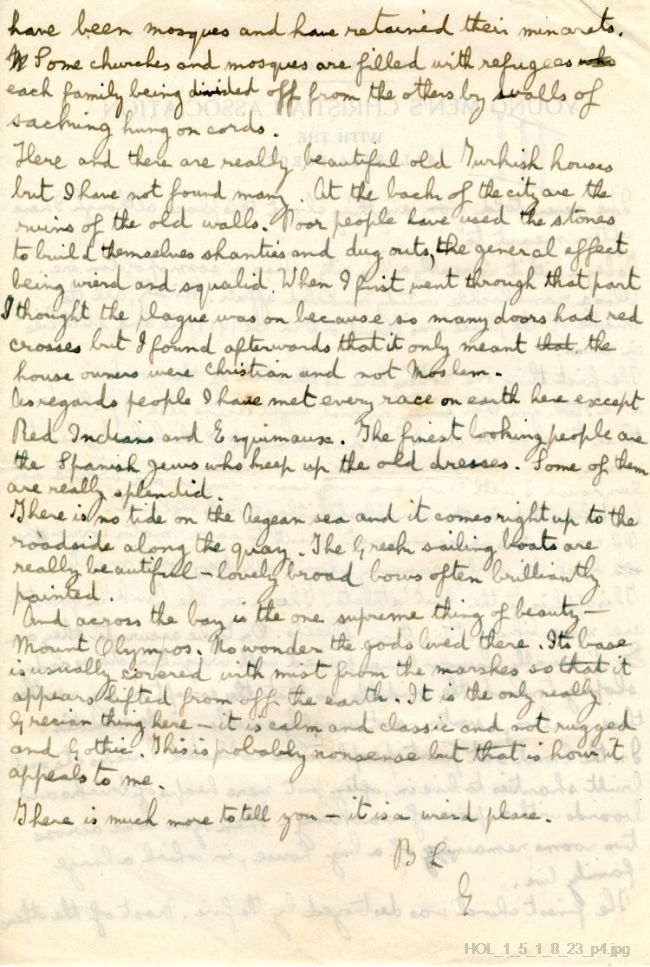 have been mosques and have retained their minarets.
Some churches and mosques are filled with refugees who
each family being divided off from the others by walls of
sacking hung on cords.
Here and there are really beautiful old Turkish houses
but I have not found many. At the back of the city are the
ruins of the old walls. Poor people have used the stones
to build themselves shanties and dug outs, the general effect
being wierd and squalid. When I first went through that part
I thought the plague was on because so many doors had red
crosses but I found afterwards that it only meant that the
house owners were Christian and not Moslem.
As regards people I have met every race on earth here except
Red Indians and Esquimaux. The finest looking people are
the Spanish Jews who keep up the old dresses. Some of them
are really splendid.
There is no tide on the Aegean sea and it comes right up to the
roadside along the quay. The Greek sailing boats are
really beautiful – lovely broad bows often brilliantly
painted.
And across the bay is the one supreme thing of beauty –
Mount Olympos. No wonder the gods lived there. Its base
is usually covered with mist from the marshes so that it
appears lifted from off the earth. It is the only really
Grecian thing here – it is calm and classic and not rugged
and Gothic. This is probably nonsense but that is how it
appeals to me.
There is much more to tell you – it is a wierd place.
B L
G
HOL_1_5_1_8_23_p4.jpg